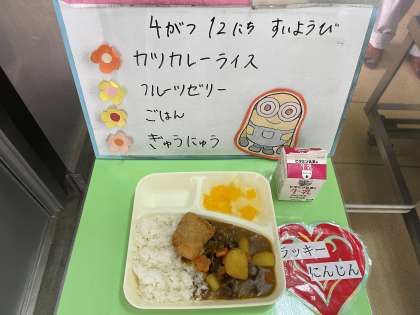 4がつ 12にち すいようび
カツカレーライス
フルーツゼリー
ごはん
ぎゅうにゅう
ラッキー
にんじん